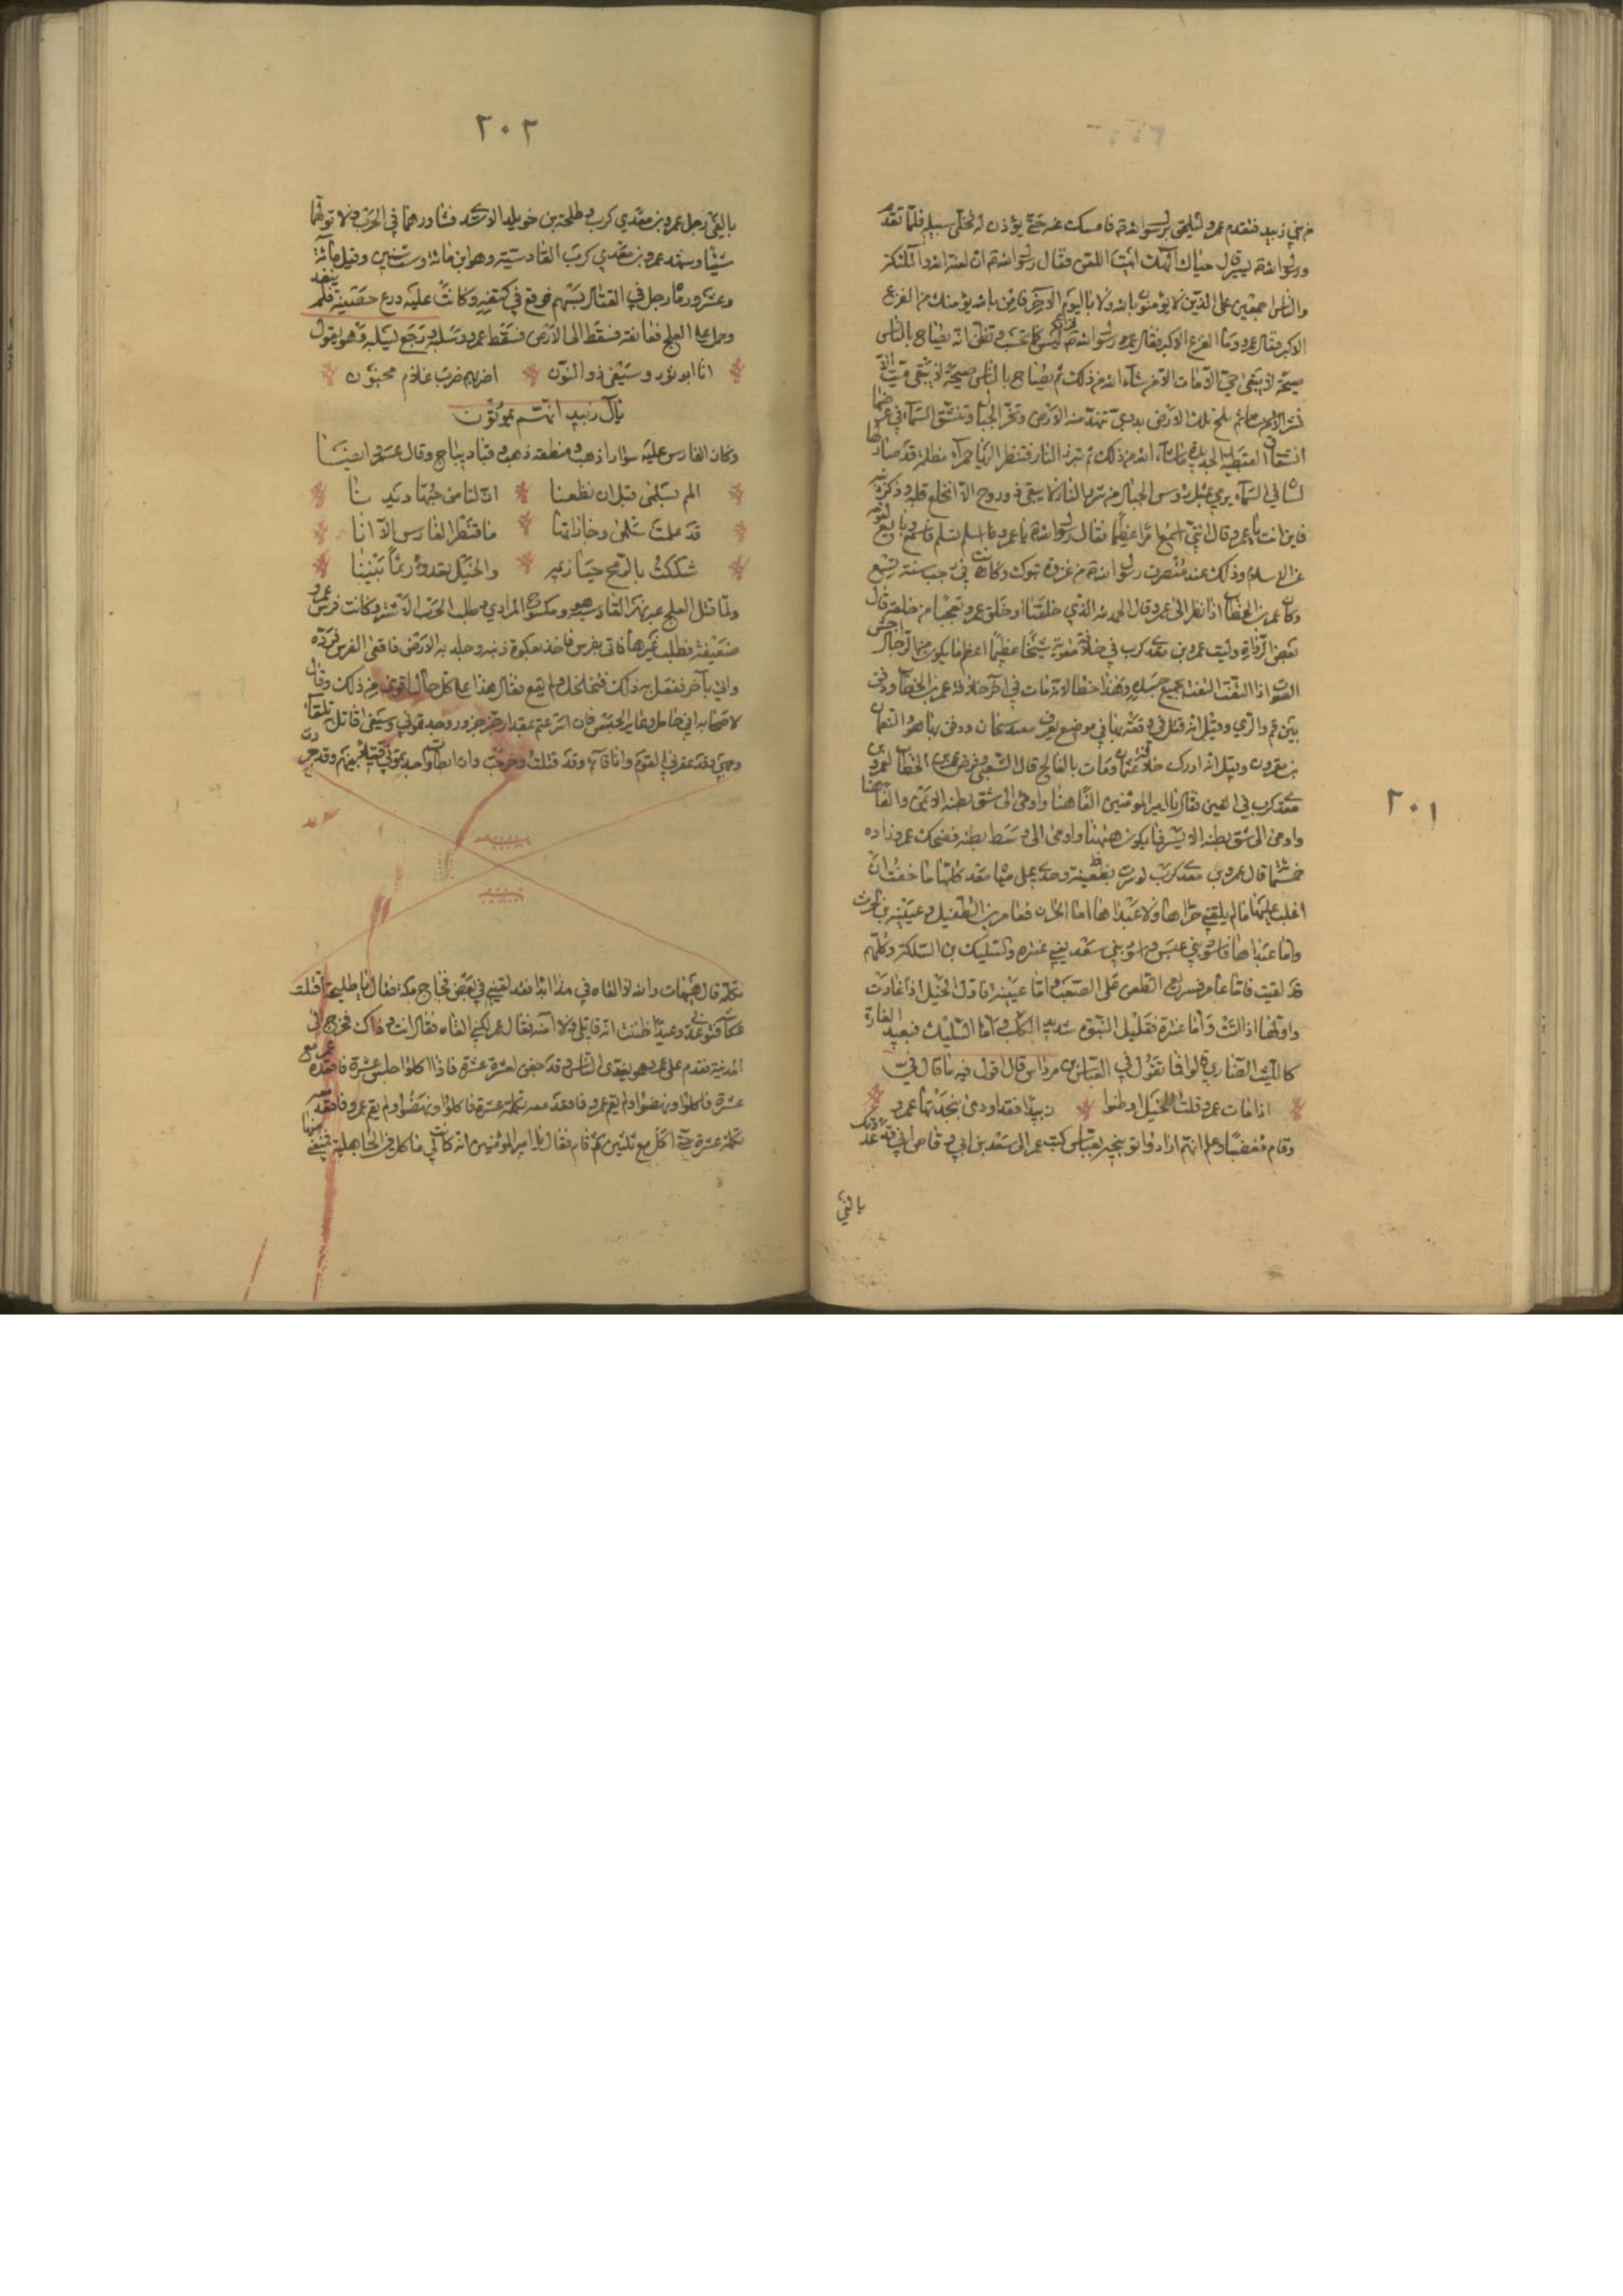 من بني زبيد فتقدم عمرو ليلحق برسول الله فامسك عنه حتى يؤذن له فخلى سبيله فلما تقدم
ورسول الله يسير قال حياك الهك ابيت اللعن فقال رسول الله ان لعنة الله والملئكة
والناس اجمعين على الذين لا يؤمنون بالله ولا باليوم الاخر فامن بالله يؤمنك من الفزع
الاكبر فقال عمرو وما الفزع الاكبر فقال رسول الله ليس كما تحسب وتظن انه يصاح بالناس
صيحة لا يبقى حي الا مات الا من شاء الله من ذلك ثم يصاح بالناس صيحة لا يبقى ميت الا
نشر ثم تلج تلك الارض بدوي تنهد منه الارض وتخر الجبال وتنشق السماء
انشقاق القبطية الجديد ما شاء الله من ذلك ثم تبرز النار فتنظر اليها حمراء مظلمة قد صار لها
لسان في السماء يرمي بمثل رؤس الجبال من شرر النار فلا يبقى ذو روح الا انخلع قلبه وذكر ذنبه
فاين انت يا عمرو قال اني اسمع امرا عظيما فقال رسول الله يا عمرو اسلم تسلم فاسلم وبايع لقومه
على الاسلام وذلك عند منصرف رسول الله من غزوة تبوك وكانت في رجب سنة تسع
وكان عمر بن الخطاب اذا نظر الى عمرو قال الحمد لله الذي خلقنا وخلق عمرو تعجبا من خلقه قال
بعض الرواة رايت عمرو بن معدي كرب في خلافة معوية شيخا عظيما اعظم ما يكون من الرجال اجش
الصوت اذا التفت التفت بجميع جسده وهذا خطا لانه مات في آخر خلافة عمر بن الخطاب ودفن
بين قم والري وقيل انه قتل في وقعة نهاوند ودفن بها هو والنعمان
بن مقرون وقيل انه ادرك خلافة عثمان ومات بالفالج قال الشعبي فرض عمر بن الخطاب لعمرو بن
معدي كرب في الفين فقال يا امير المؤمنين الف هاهنا واومى الى شق بطنه الايمن والف هاهنا
واومى الى شق بطنه الايسر فما يكون هاهنا واومى الى وسط بطنه فضحك عمر وزاده
خمسمائة قال عمرو بن معدي كرب لو سرت بظعينة وحدي على مياه معد كلها ما خفت ان
اغلب عليها ما لم يلقني حراها ولا عبداها اما الحران فعامر بن الطفيل وعيينه بن الحرث
واما عبداها فاسود بني عبس واسود بني سعد يعني عنتره والسليك بن السلكة وكلهم
قد لقيت فاما عامر فسريع الطعن على الصعب واما عيينه فاول الخيل اذا غارت
واولها اذا الت واما عنترة فقليل النبوة شديد الكلب واما السليك فبعيد الغارة
كالليث الضاري قالوا فما تقول في العباس بن مرداس قال اقول فيه ما قال في
اذا مات عمرو قلت للخيل اوطئوا زبيدا فقد اودى بنجدتها عمرو
وقام مغضبا وعلم انهم ارادوا توبيخه بعباس كتب عمر الى سعد بن ابي وقاص اني قد امددتك
بالفي
٢٠١
٢٠٢
بالفي رجل عمرو بن معدي كرب وطلحة بن خويلد الاسدي فشاورهما في الحرب ولا تولهما
شيئا وشهد عمرو بن معدي كرب القادسيه وهو ابن مائة وست سنين وقيل مائة
وعشر ورماه رجل في القتال بسهم فوقع في كتفه وكانت عليه درع حصينة فلم ينفذ
وحمل على العلج فعانقه فسقط الى الارض فسقط عمرو وسلبه ورجع بسلبه وهو يقول
انا ابو ثور وسيفي ذو النون اضربهم ضرب غلام مجنون
يال زبيد انهم يموتون
وكان الفارس عليه سوارا ذهب ومنطقة ذهب وقباء ديباج وقال عمرو ايضا
الم تسلمى قبل ان تظعنا ان لنا من حبها ديدنا
قد علمت سلمى وجاراتها ما قنطر الفارس الا انا
شككت بالرمح حيازيمه والخيل تعدو زيما بيننا
ولما قتل العلج عبر نهر القادسيه هو ومكشوح المرادي وطلب الحرب الاشتر وكانت فرس عمرو
ضعيفة فطلب غيرها فاتى بفرس فاخذ بعكوة ذنبه وجلد به الارض فاقعى الفرس فرده
واتى بآخر ففعل به ذلك فتحلحل ولم يقع فقال هذا على كل حال اقوى من ذلك وقال
لاصحابه اني حامل وعابر الجسر فان اسرعتم بمقدار جزر جزور وجدتموني وسيفي اقاتل به تلقاء
وجهي وقد عقرني القوم وانا قائم وقد قتلت وجرحت وان ابطاتم وجدتموني قتيلا بينهم وقد
بكلمة قال هيهات والله لا القاه في هذا ابدا فقد لقيني في بعض فجاج مكة فقال يا طليحة اقتلت
عكاشة فتوعدني وعيدا ظننت انه قاتلي ولا آمنه فقال عمر لكني القاه فقال انت وذاك فخرج الى
المدينة فقدم على عمر وهو يغدي الناس وقد جفن لعشرة عشرة فاذا اكلوا جلس عشرة فاقعده عمر مع
عشرة فاكلوا ونهضوا ولم يقم عمرو فاقعد معه تكملة عشرة فاكلوا ونهضوا ولم يقم عمرو فاقعد معه
تكملة عشرة حتى اكل مع ثلثين ثم قام فقال يا امير المؤمنين انه كان لي مآكل في الجاهلية منعني منها